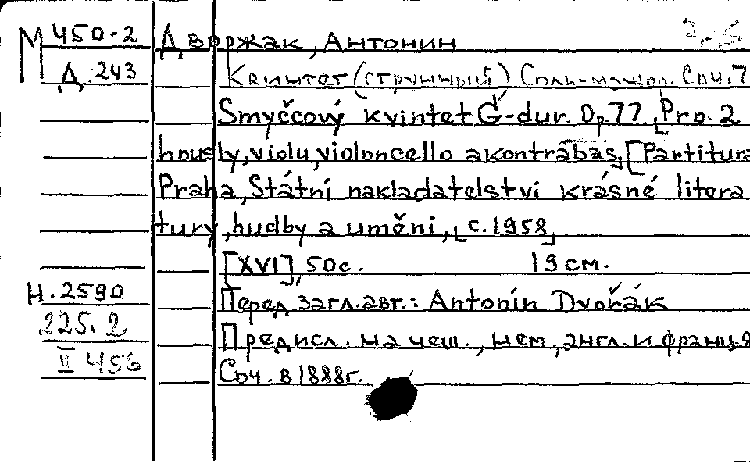 М 450-2
Д 243
Дворжак, Антонин
Квинтет (струнный) Соль-мажор. Соч. 7
Smyčcový kvintet G-dur. Op. 77. [Pro. 2
hously, violu, violoncello a kontrabas. [Partitura
Praha, Státní nakladatelství krásné litera
tury, hudby a uměni, [c. 1958]
[XVI], 50с. 19 см.
Перед загл. авт.: Antonín Dvořák
Предисл. на чеш., нем., англ. и франц. я
Соч. в 1888г.
Н. 2590
225. 2
II 456